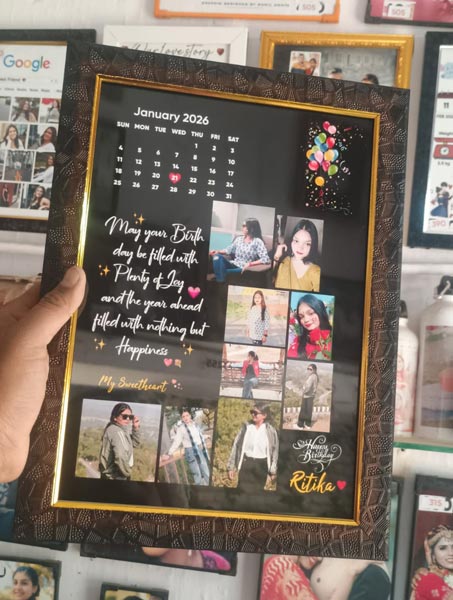 Google
love story
505
January 2026
SUN MON TUE WED THU FRI SAT
1 2 3
4 5 6 7 8 9 10
11 12 13 14 15 16 17
18 19 20 21 22 23 24
25 26 27 28 29 30 31
May your Birth
day be filled with
Plenty of Joy
and the year ahead
filled with nothing but
Happiness
My Sweetheart
Happy
Birthday
Ritika
11
390
315